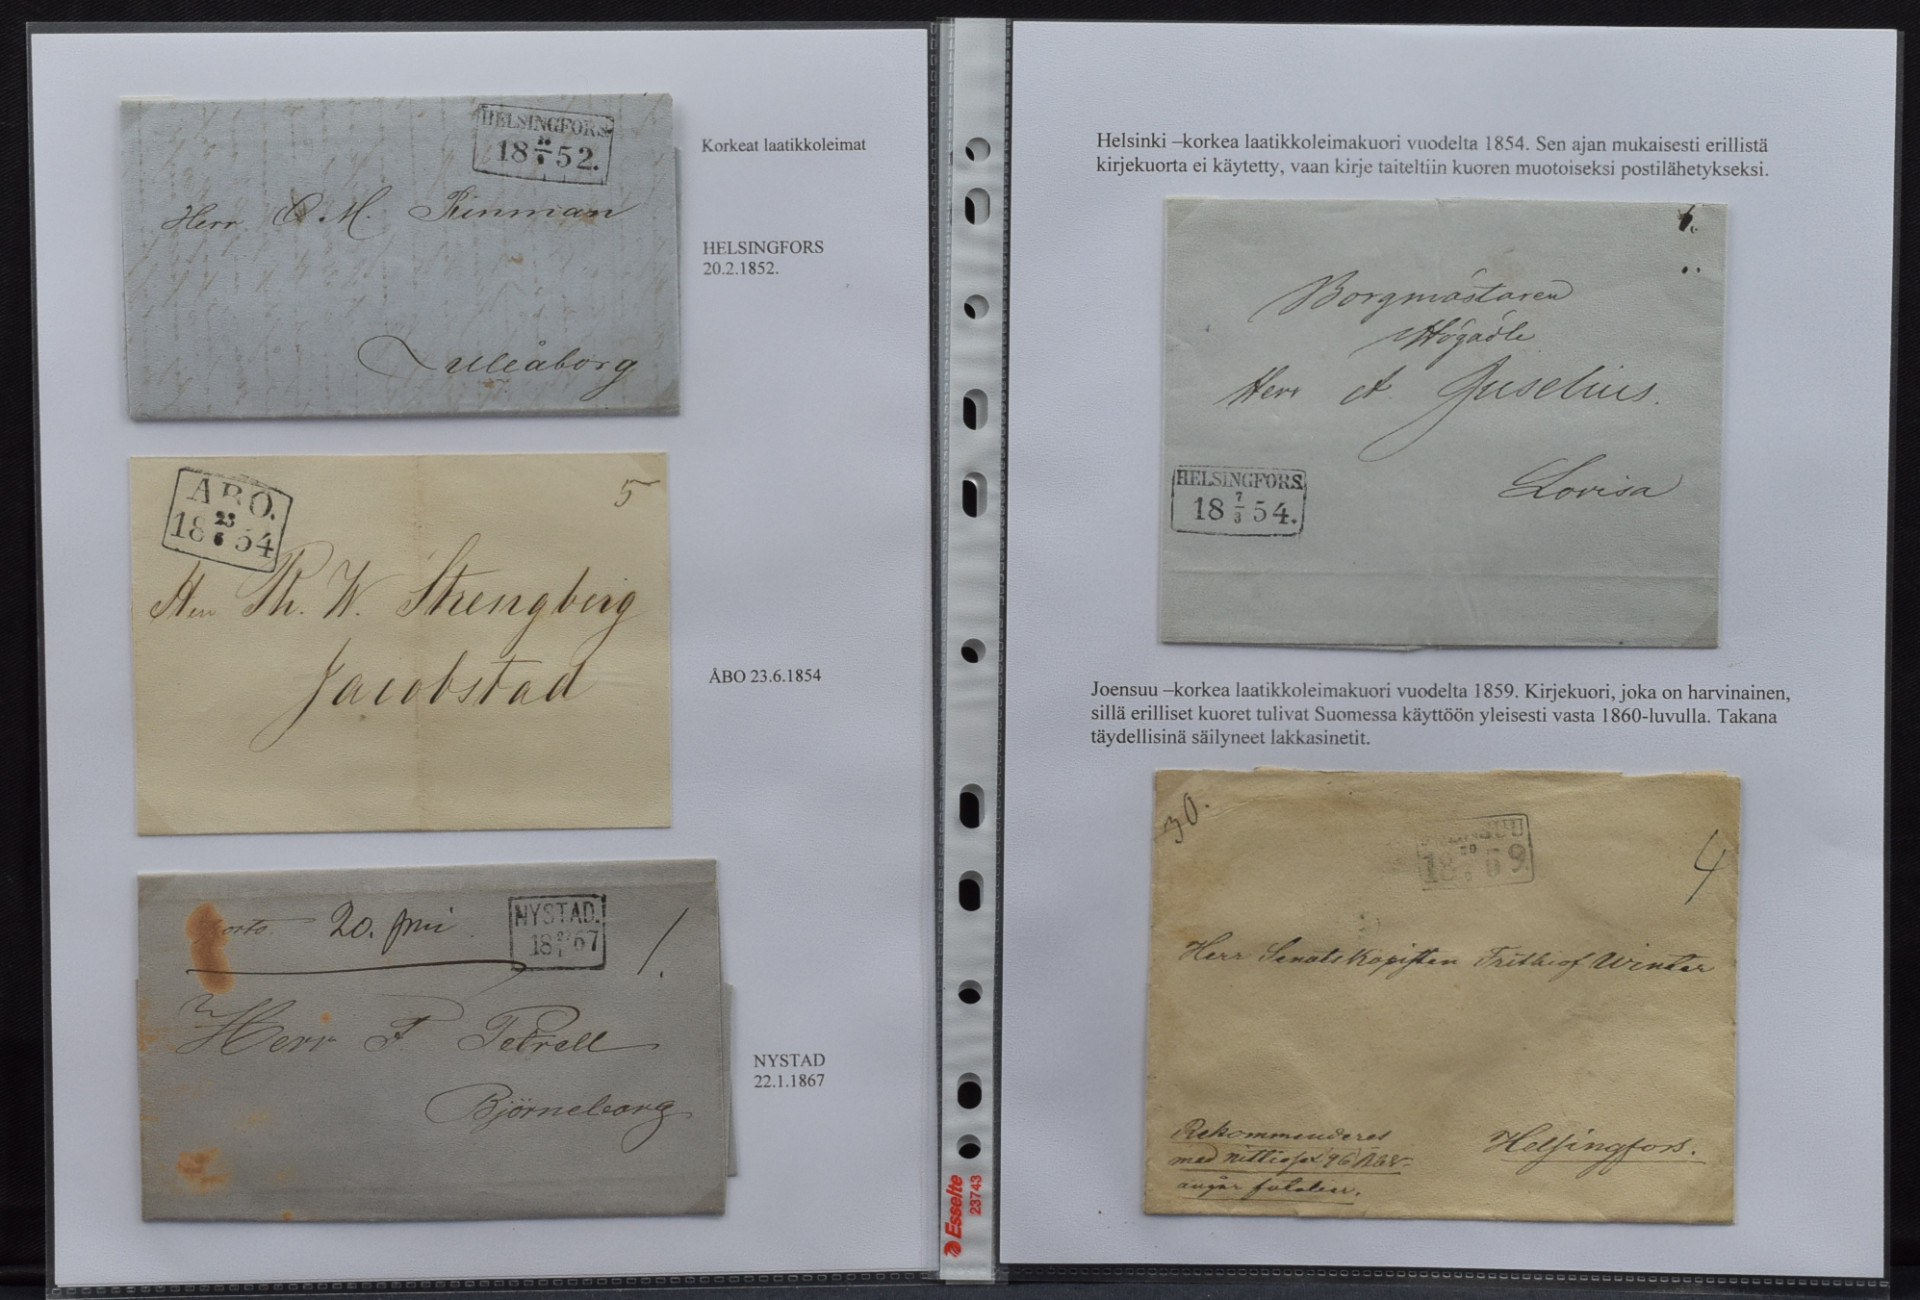 HELSINGFORS.
18 20/2 52.
Herr O. M. Rinman
Uleåborg
Korkeat laatikkoleimat
HELSINGFORS
20.2.1852.
ÅBO.
18 23/6 54
5
Herr Th. W. Strengberg
Jacobstad
ÅBO 23.6.1854
Porto 20. pni
NYSTAD.
18 22/1 67
1.
Herr F. Petrell
Björneborg
NYSTAD
22.1.1867
Esselte
23743
Helsinki –korkea laatikkoleimakuori vuodelta 1854. Sen ajan mukaisesti erillistä
kirjekuorta ei käytetty, vaan kirje taiteltiin kuoren muotoiseksi postilähetykseksi.
Borgmästaren
Högädle
Herr A. Juselius.
Lovisa
HELSINGFORS.
18 7/3 54.
Joensuu –korkea laatikkoleimakuori vuodelta 1859. Kirjekuori, joka on harvinainen,
sillä erilliset kuoret tulivat Suomessa käyttöön yleisesti vasta 1860-luvulla. Takana
täydellisinä säilyneet lakkasinetit.
30.
18 59
4
Herr Senatskopisten Frithiof Winter
Rekommenderes
med nittiosex (96)
angår fatalier.
Helsingfors.